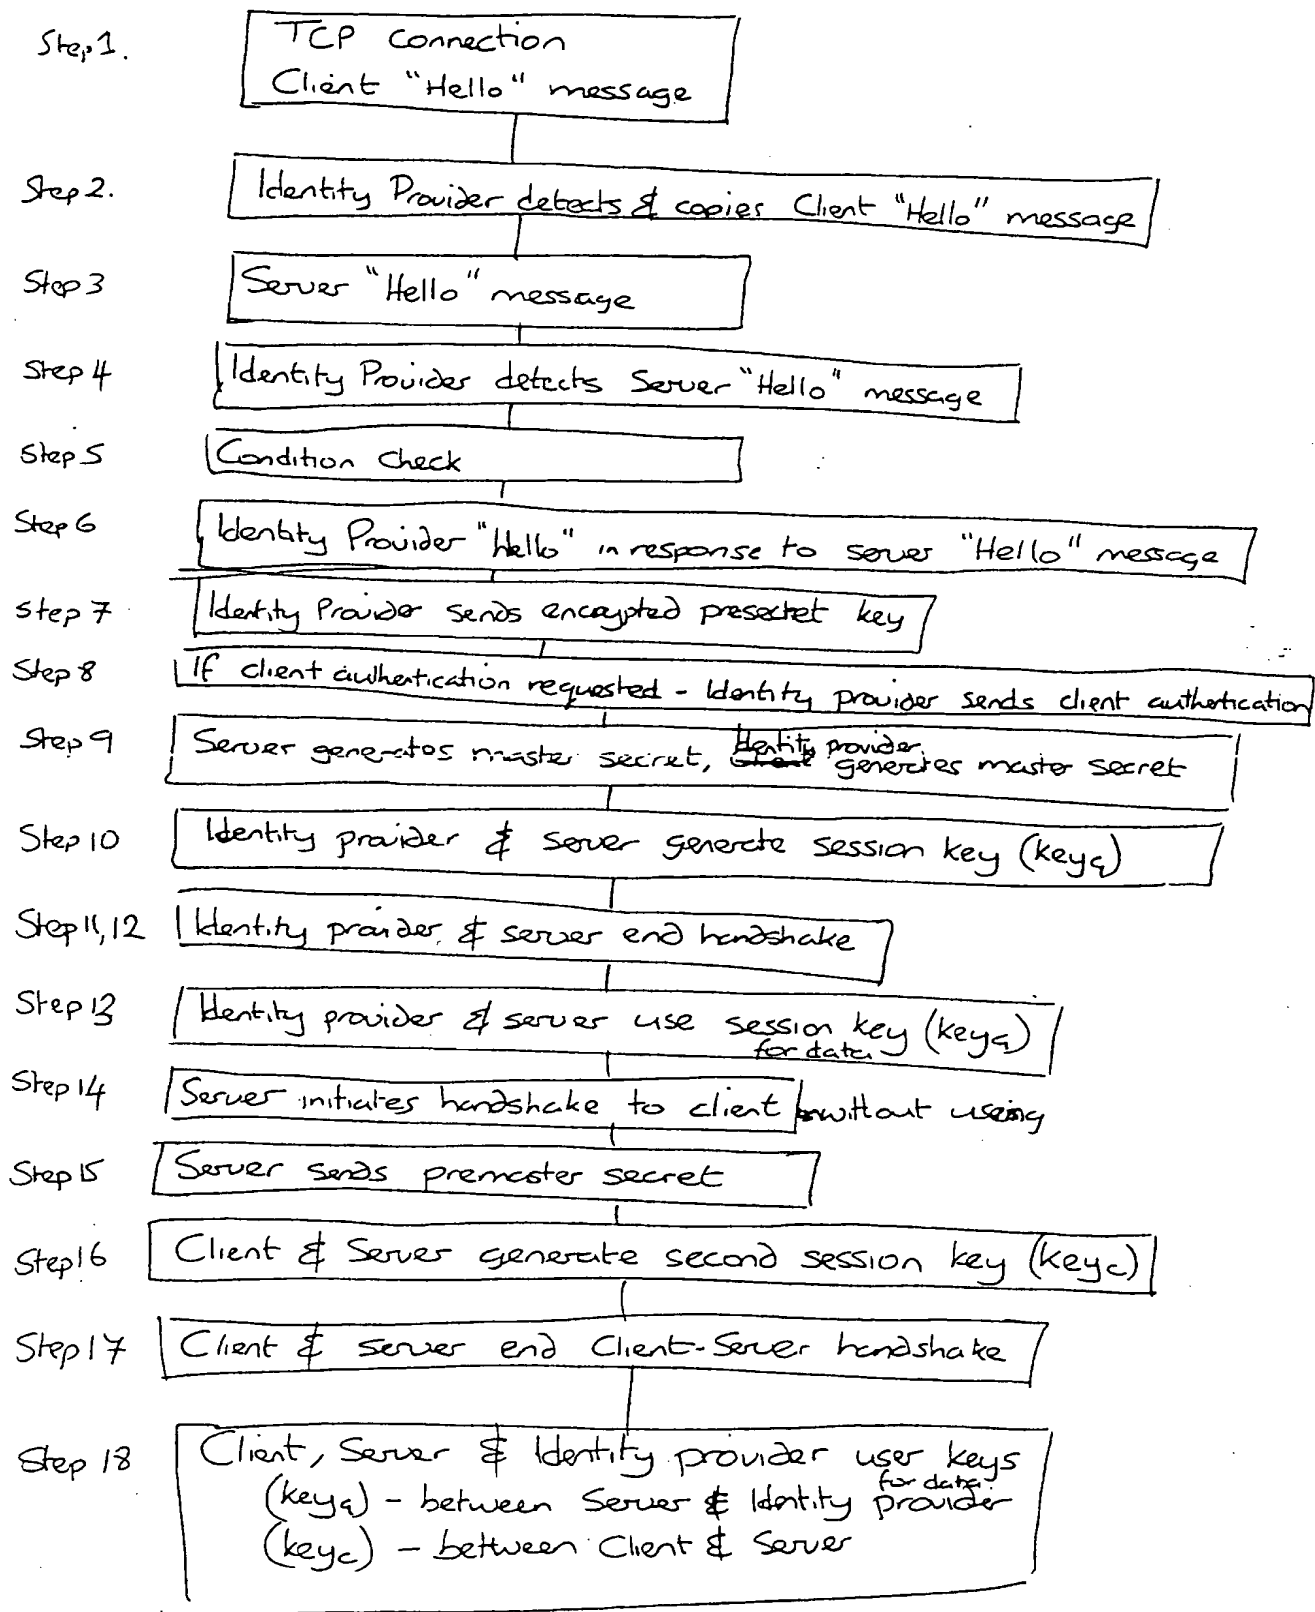 Step 1.
TCP connection
Client "Hello" message
Step 2.
Identity Provider detects & copies Client "Hello" message
Step 3
Server "Hello" message
Step 4
Identity Provider detects Server "Hello" message
Step 5
Condition check
Step 6
Identity Provider "Hello" in response to server "Hello" message
Step 7
Identity Provider sends encrypted presectet key
Step 8
If client authentication requested - Identity provider sends client authentication
Step 9
Server generates master secret, Identity provider generates master secret
Step 10
Identity provider & server generate session key (keya)
Step 11,12
Identity provider & server end handshake
Step 13
Identity provider & server use session key (keya)
for data
Step 14
Server initiates handshake to client without using
Step 15
Server sends premaster secret
Step 16
Client & Server generate second session key (keyc)
Step 17
Client & server end Client-Server handshake
Step 18
Client, Server & Identity provider user keys
for data
(keya) - between Server & Identity provider
(keyc) - between Client & Server